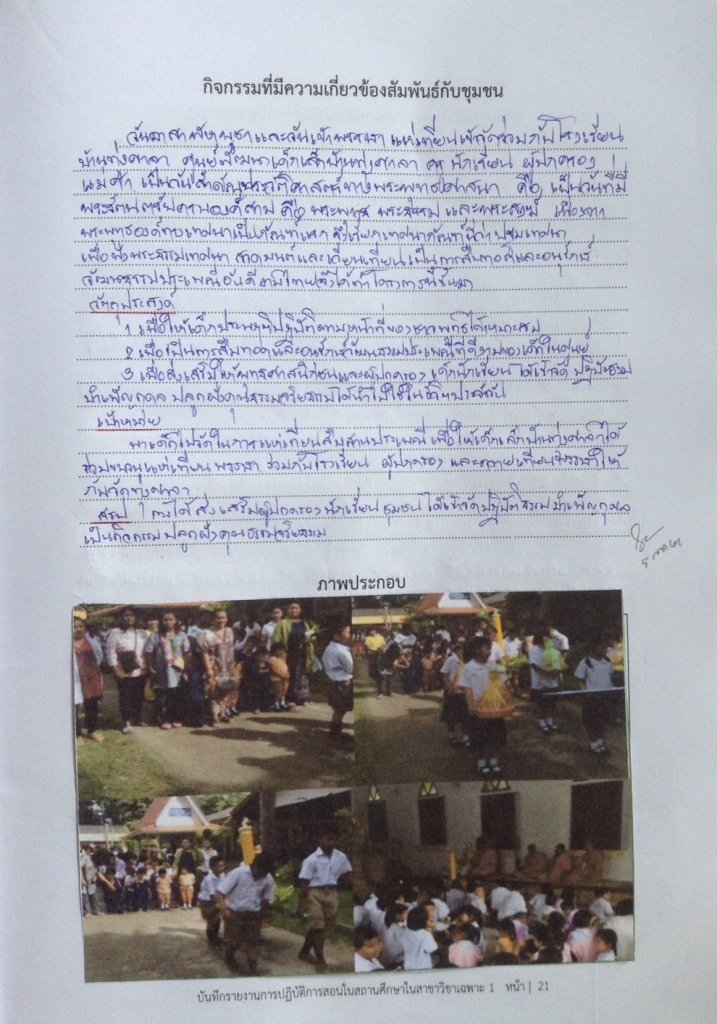 กิจกรรมที่มีความเกี่ยวข้องสัมพันธ์กับชุมชน
วันอาสาฬหบูชาและวันเข้าพรรษา แห่เทียนเข้าวัดร่วมกับโรงเรียน
บ้านทุ่งศาลา ศูนย์พัฒนาเด็กเล็กบ้านทุ่งศาลา ครู นักเรียน ผู้ปกครอง
เป็นวันสำคัญ ทางพระพุทธศาสนา คือ เป็นวันที่มี
พระรัตนตรัยครบองค์สาม คือ พระพุทธ พระธรรม และพระสงฆ์ เนื่องจาก
พระพุทธองค์ทรงเทศนาเป็นกัณฑ์แรก ปฐมเทศนา
เพื่อฟังพระธรรมเทศนา สวดมนต์และเวียนเทียน เป็นการสืบทอดและอนุรักษ์
วัฒนธรรมประเพณีอันดีงาม
วัตถุประสงค์
1. เพื่อให้เด็กประพฤติปฏิบัติตามหน้าที่ของชาวพุทธได้เหมาะสม
2. เพื่อเป็นการสืบทอดและอนุรักษ์วัฒนธรรมประเพณีที่ดีงามของเด็กในศูนย์
3. เพื่อส่งเสริมให้พุทธศาสนิกชนและผู้ปกครอง เด็กนักเรียน ได้เข้าวัด ปฏิบัติธรรม
บำเพ็ญกุศล ปลูกฝังคุณธรรมจริยธรรมได้นำไปใช้ในชีวิตประจำวัน
เป้าหมาย
พาเด็กไปวัดในการแห่เทียนสืบสานประเพณี เพื่อให้เด็กเล็กบ้านทุ่งศาลาได้
ร่วมขบวนแห่เทียนพรรษา ร่วมกับโรงเรียน ผู้ปกครอง และถวายเทียนพรรษาให้
กับวัดทุ่งศาลา
สรุป ได้ส่งเสริมผู้ปกครอง นักเรียน ชุมชน ได้เข้าวัดปฏิบัติธรรม บำเพ็ญกุศล
เป็นกิจกรรมปลูกฝังคุณธรรมจริยธรรม
ภาพประกอบ
บันทึกรายงานการปฏิบัติการสอนในสถานศึกษาในสาขาวิชาเฉพาะ 1 หน้า | 21